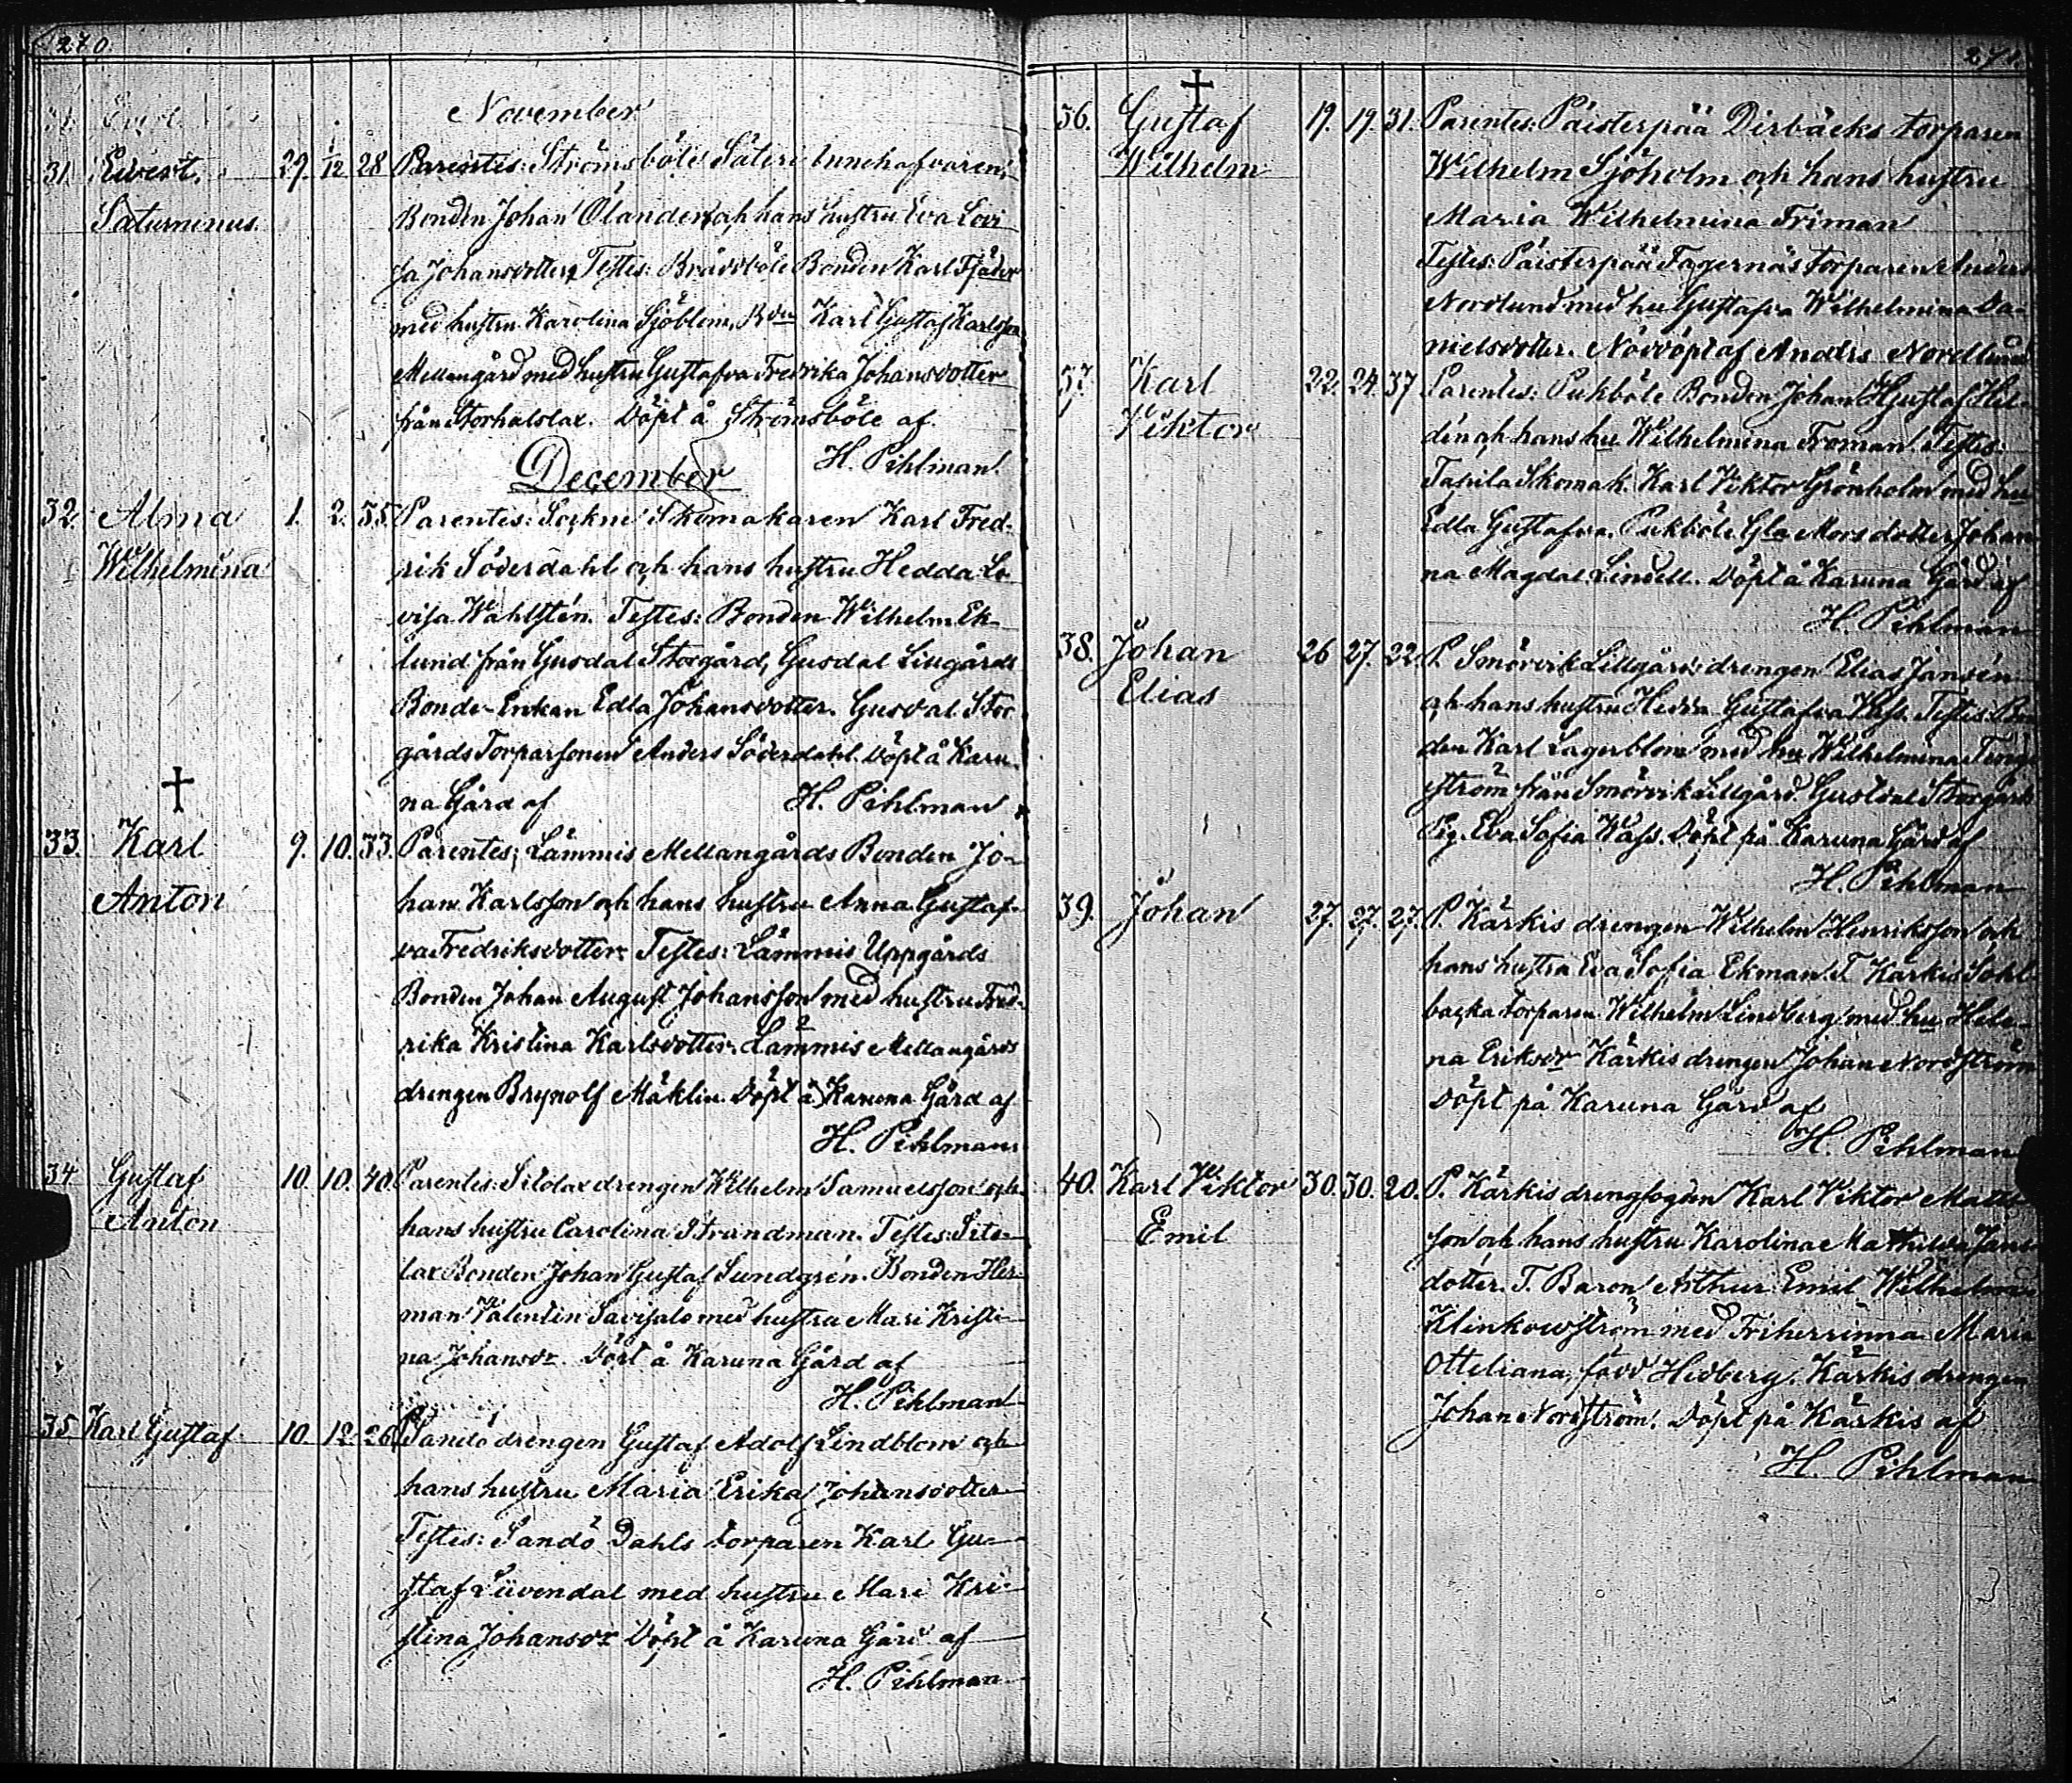 270.
November
31. Evert 29. 1/12 28 Parentes: Strömsböle Säteri Innehafvaren,
Saturninus. Bonden Johan Ölander och hans hustru Eva Lovi
sa Johansdotter, Testes: Bråddböle Bonden Karl Fjäder
med hustru Karolina Sjöblom, Bdn Karl Gustaf Karlsson
Mellangård med hustru Gustafva Fredrika Johansdotter
från Storhalslax. Döpt å Strömsböle af
H. Pihlman.
December
32. Alma 1. 2. 35. Parentes: Sockne Skomakaren Karl Fred-
Wilhelmina rik Söderdahl och hans hustru Hedda Lo
visa Wahlstén. Testes: Bonden Wilhelm Ek-
lund från Gusdal Storgård, Gusdal Lillgårds
Bonde-Enkan Edla Johansdotter. Gusdal Stor
gårds Torparsonen Anders Söderdahl. Döpt å Karu-
na Gård af H. Pihlman
33. Karl 9. 10. 33. Parentes: Lämmis Mellangårds Bonden Jo-
Anton han Karlsson och hans hustru Anna Gustaf-
va Fredriksdotter. Testes: Lämmis Uppgårds
Bonden Johan August Johansson med hustru Fred-
rika Kristina Karlsdotter. Lämmis Mellangårds
drengen Brynolf Mäklin. Döpt å Karuna Gård af
H. Pihlman.
34 Gustaf 10. 10. 40. Parentes: Sitolax drengen Wilhelm Samuelsson och
Anton hans hustru Carolina Strandman. Testes: Sito-
lax Bonden Johan Gustaf Sundgrén. Bonden Her-
man Valentin Savisalo med hustru Mari Kristi-
na Johansdr. Döpt å Karuna Gård af
H. Pihlman
35 Karl Gustaf 10. 12. 26. P. Sandö drengen Gustaf Adolf Lindblom och
hans hustru Maria Erika Johansdotter
Testes: Sandö Dahls torparen Karl Gu-
staf Liivendal med hustru Mari Kri-
stina Johansdr Döpt å Karuna Gård af
H. Pihlman
271.
36. Gustaf 19. 19. 31. Parentes: Päisterpää Dirbäcks torparen
Wilhelm Wilhelm Sjöholm och hans hustru
Maria Wilhelmina Friman
Testes: Päisterpää Fagernäs torparen Anders
Nordlund med hu Gustafva Wilhelmina Da-
nielsdotter. Nöddöpt af Anders Nordlund
37. Karl 22. 24. 37 Parentes: Pukböle Bonden Johan Gustaf Hel-
Viktor dén och hans hu Wilhelmina Froman. Testes:
Tapila Skomak. Karl Viktor Grönholm med hu
Edla Gustafva. Pukböle Gla Mors dotter Johan
na Magdal. Lindell. Döpt å Karuna Gård af
H. Pihlman
38. Johan 26 27. 22. P. Smörvik Lillgårds drengen Elias Jansén
Elias och hans hustru Hedda Gustafva Kass. Testes: Bon
den Karl Lagerblom med hu Wilhelmina Teng-
ström från Smörvik Lillgård. Gusdal Storgårds
Pig. Eva Sofia Kass. Döpt på Karuna Gård af
H. Pihlman
39. Johan 27. 27. 27. P. Kärkis drengen Wilhelm Henriksson och
hans hustru Eva Sofia Ekman. T. Kärkis Sohl
backa torparen Wilhelm Lindberg med hu Hele-
na Eriksdr Kärkis drengen Johan Nordström
Döpt på Karuna Gård af
H. Pihlman
40. Karl Viktor 30. 30. 20. P. Kärkis drengfogden Karl Viktor Matts
Emil son och hans hustru Karolina Mathilda Jans
dotter. T. Baron Arthur Emil Wilhelm
Klinkowström med Friherrinna Maria
Otteliana, född Hedberg. Kärkis drengen
Johan Nordström. Döpt på Kärkis af
H. Pihlman